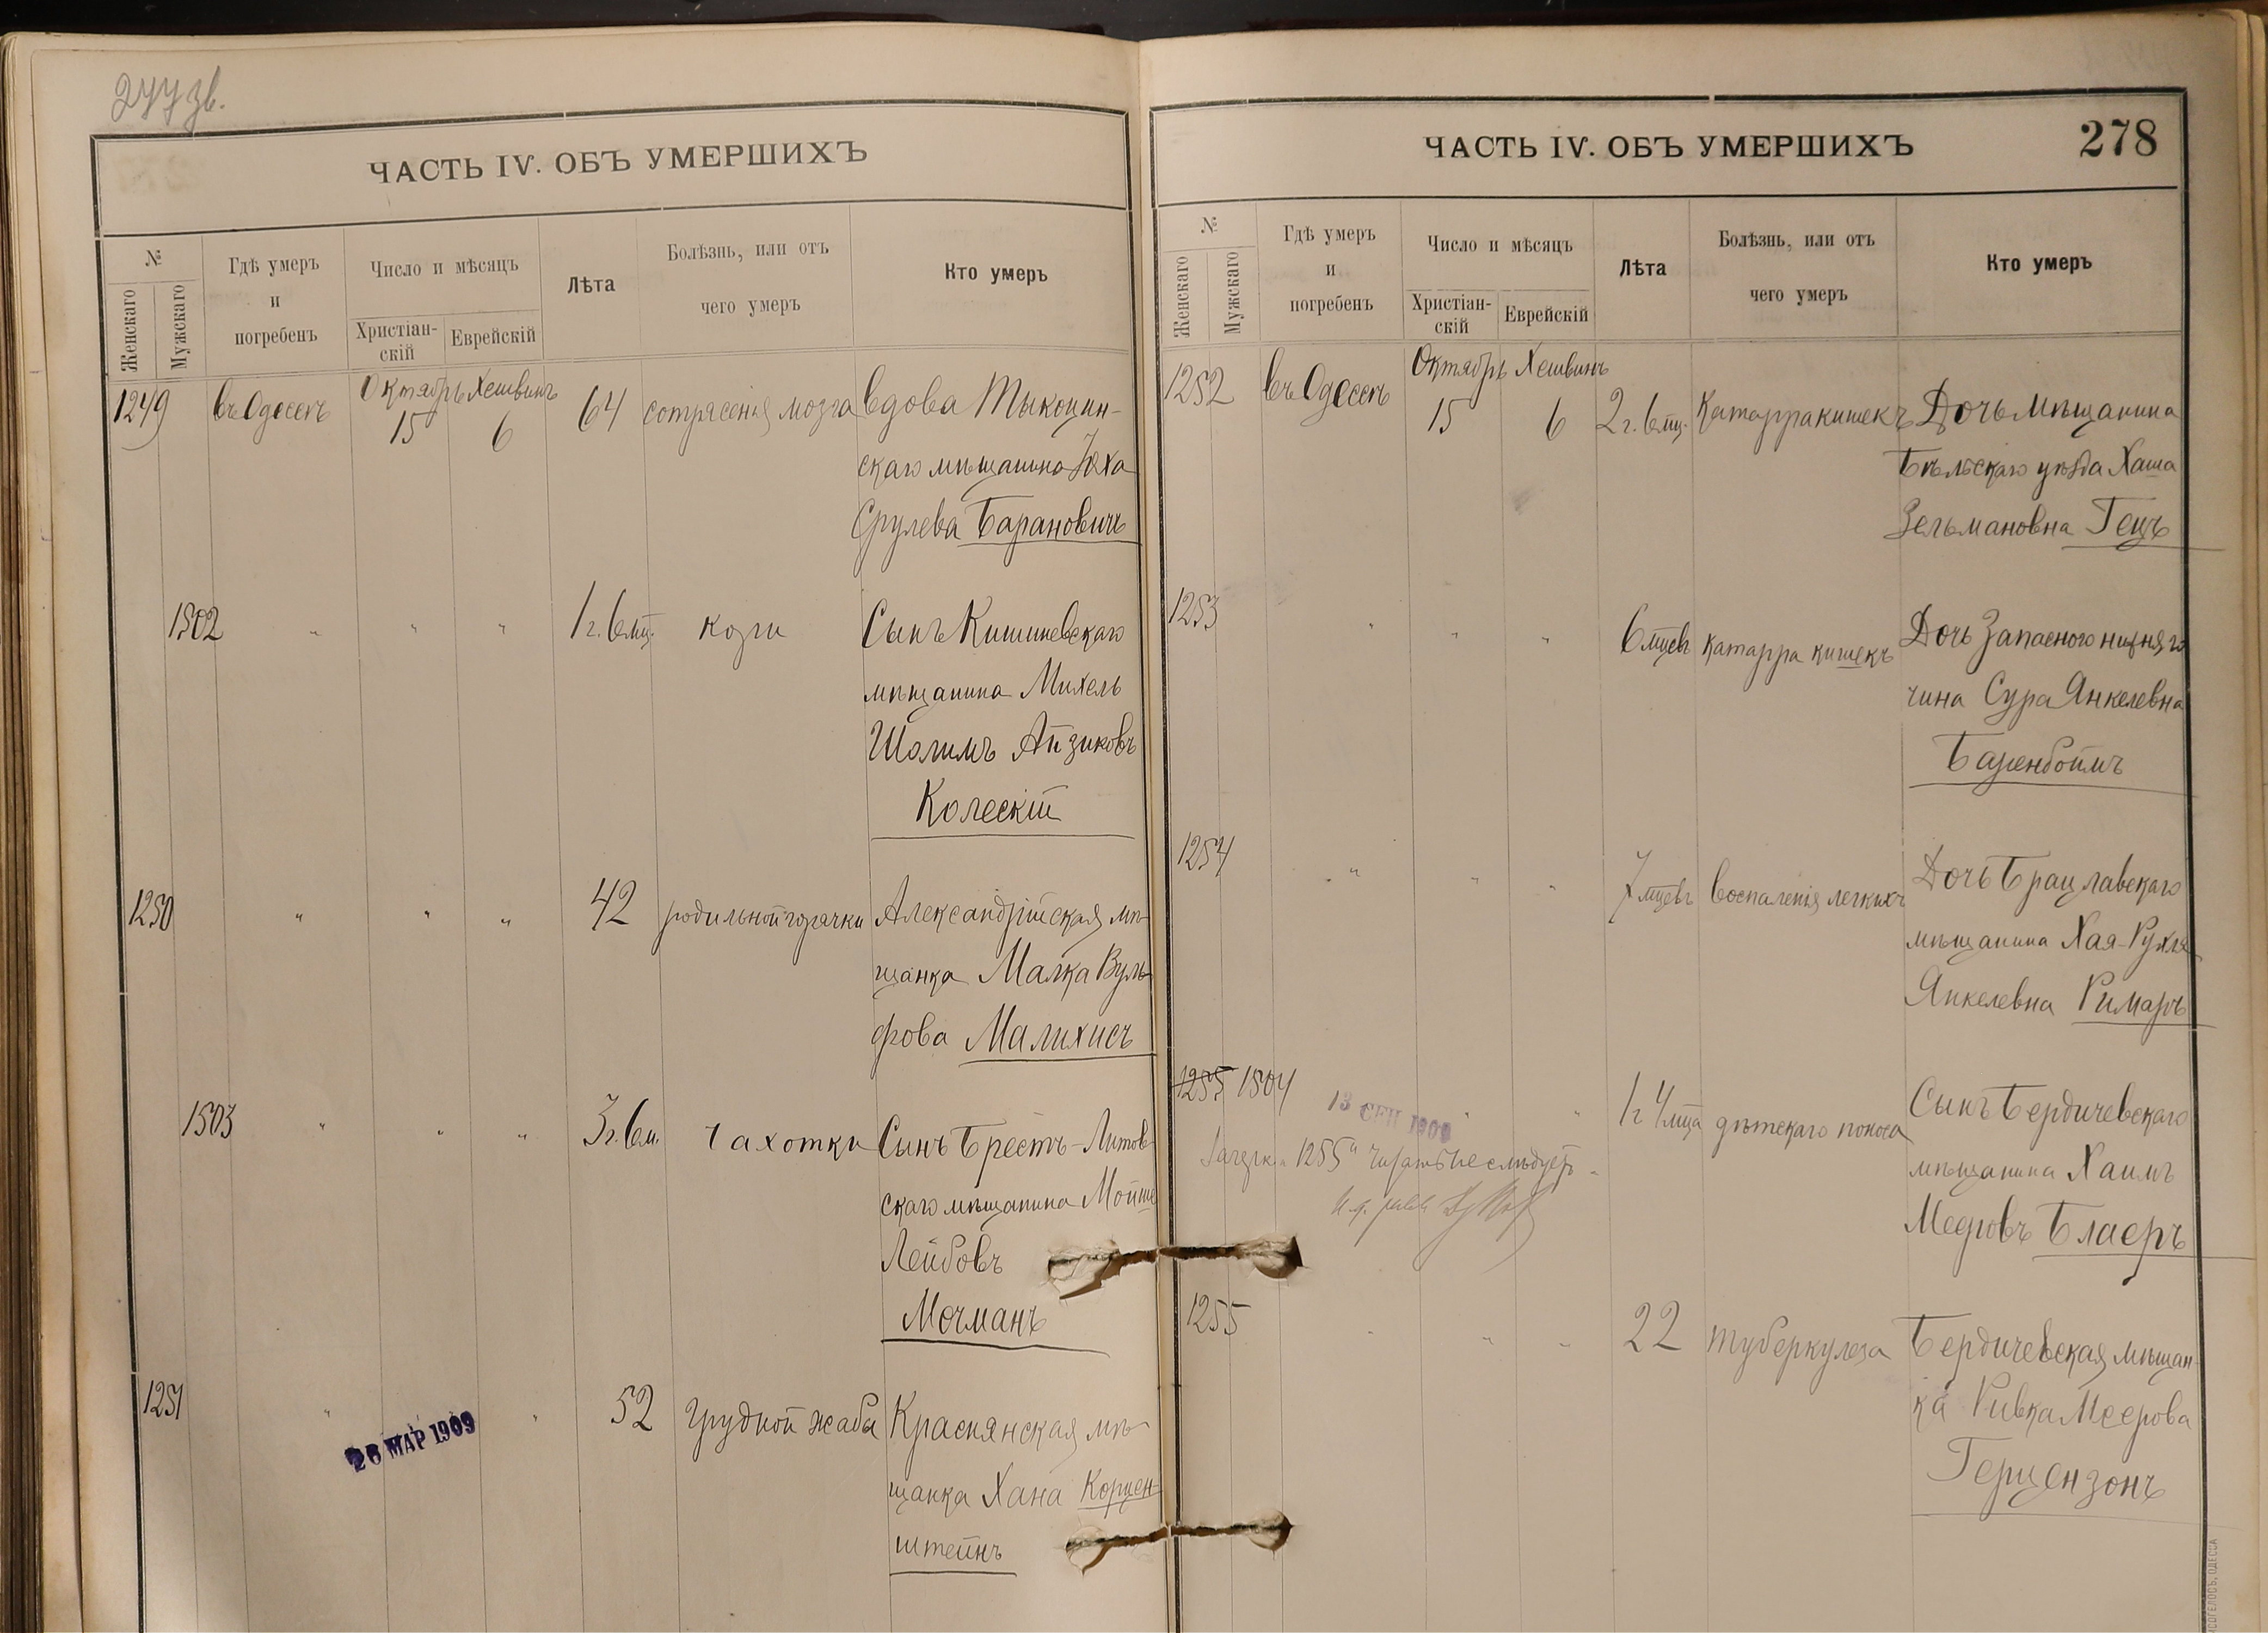 277 зв.
ЧАСТЬ IV. ОБЪ УМЕРШИХЪ
№
Женскаго
Мужскаго
Гдѣ умеръ
и
погребенъ
Число и мѣсяцъ
Христіан-
скій
Еврейскій
Лѣта
Болѣзнь, или отъ
чего умеръ
Кто умеръ
1249 въ Одессѣ Октябрь 15 Хешвинъ 6 64 сотрясенія мозга вдова Тыкоцин-
скаго мѣщанина
Срулева Барановичъ
1502 " " " 1 г. 6 мц. кори Сынъ Кишиневскаго
мѣщанина Михель
Шолимъ Айзиковъ
Колескій
1250 " " " 42 родильной горячки Александрійская мѣ-
щанка Малка Вуль-
фова Малихисъ
1503 " " " 3 г. 6 м. чахотки Сынъ Брестъ-Литов-
скаго мѣщанина Мойше
Лейбовъ
Мочманъ
1251 " " 52 грудной жабы Краснянская мѣ-
щанка Хана Корцен-
штейнъ
26 МАР 1909
ЧАСТЬ IV. ОБЪ УМЕРШИХЪ
278
№
Женскаго
Мужскаго
Гдѣ умеръ
и
погребенъ
Число и мѣсяцъ
Христіан-
скій
Еврейскій
Лѣта
Болѣзнь, или отъ
чего умеръ
Кто умеръ
1252 въ Одессѣ Октябрь 15 Хешвинъ 6 2 г. 6 мц. катарра кишекъ Дочь мѣщанина
Бѣльскаго уѣзда Хаша
Зельмановна Гецъ
1253 " " " 6 мцевъ катарра кишекъ Дочь Запасного нижняго
чина Сура Янкелевна
Баренбоймъ
1254 " " " 7 мцевъ воспаленія легкихъ Дочь Брацлавскаго
мѣщанина Хая-Рухля
Янкелевна Римаръ
1255 1504 " " 1 г 4 мца дѣтскаго поноса Сынъ Бердичевскаго
мѣщанина Хаимъ
Мееровъ Блаеръ
13 СЕН 1909
1255" читать не слѣдуетъ
1255 " " " 22 туберкулеза Бердичевская мѣщан-
ка Ривка Меерова
Герцензонъ